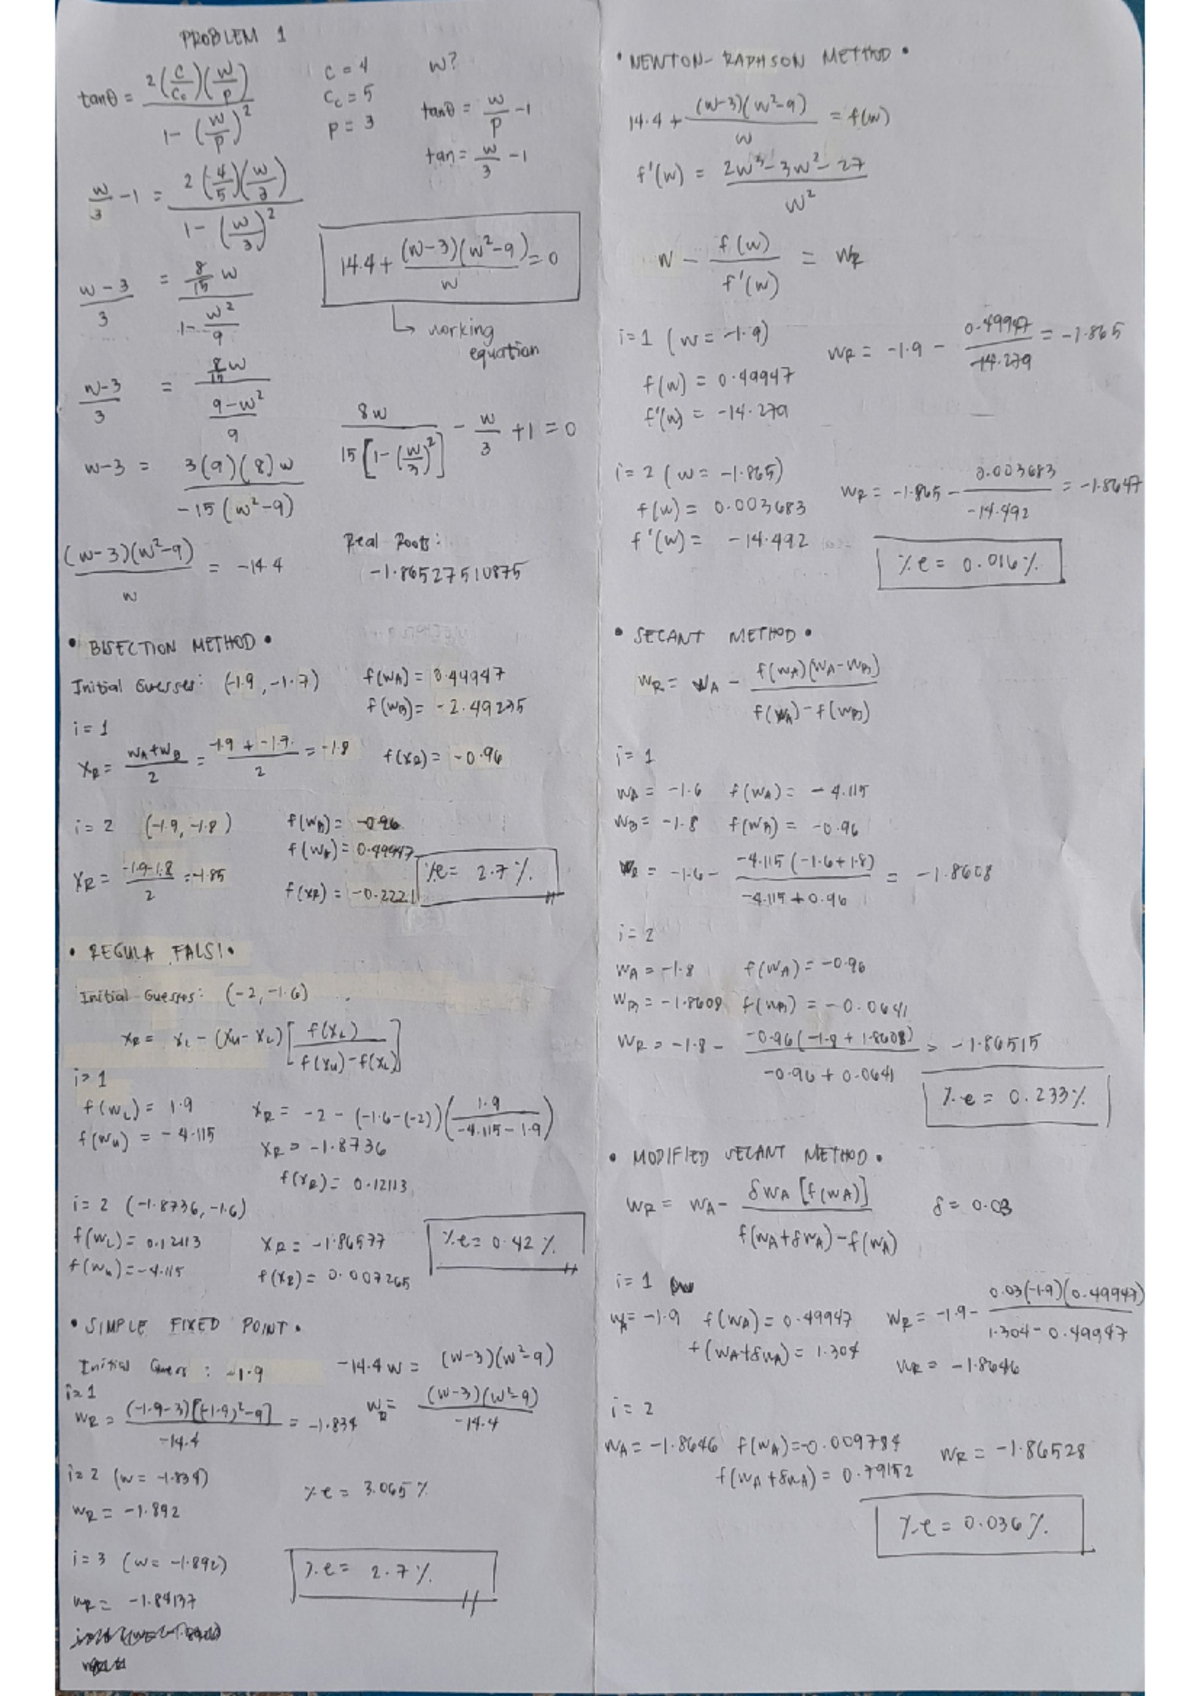 PROBLEM 1
tanθ = 2(C/Cc)(w/p) / 1-(w/p)²
C = 4
Cc = 5
P = 3
w?
tanθ = w/p - 1
tan = w/3 - 1
w/3 - 1 = 2(4/5)(w/3) / 1-(w/3)²
14.4 + (w-3)(w²-9)/w = 0
↳ working equation
w-3/3 = 8/15 w / 1-w²/9
w-3/3 = 8/15 w / 9-w²/9
8w / 15[1-(w/3)²] - w/3 + 1 = 0
w-3 = 3(9)(8)w / -15(w²-9)
(w-3)(w²-9)/w = -14.4
Real Roots:
-1.86527510875
• BISECTION METHOD •
Initial Guesses: (-1.9, -1.7)
f(wA) = 0.49947
f(wB) = -2.49235
i = 1
XR = wA+wB/2 = -1.9 + -1.7/2 = -1.8
f(XR) = -0.96
i = 2 (-1.9, -1.8)
f(wB) = -0.96
f(wA) = 0.49947
XR = -1.9-1.8/2 = -1.85
f(XR) = -0.2221
%e = 2.7%
• REGULA FALSI •
Initial Guesses: (-2, -1.6)
XR = XL - (XU - XL)[f(XL) / f(XU)-f(XL)]
i = 1
f(wL) = 1.9
f(wu) = -4.115
XR = -2 - (-1.6-(-2))(1.9 / -4.115-1.9)
XR = -1.8736
f(XR) = 0.12113
i = 2 (-1.8736, -1.6)
f(wL) = 0.12113
f(wu) = -4.115
XR = -1.86577
f(XR) = 0.007265
%e = 0.42%
• SIMPLE FIXED POINT •
Initial Guess : -1.9
-14.4w = (w-3)(w²-9)
i = 1
wR = (-1.9-3)[(-1.9)²-9] / -14.4 = -1.834
wR = (w-3)(w²-9) / -14.4
i = 2 (w = -1.834)
wR = -1.892
%e = 3.065%
i = 3 (w = -1.892)
wR = -1.84137
%e = 2.7%
• NEWTON-RAPHSON METHOD •
14.4 + (w-3)(w²-9)/w = f(w)
f'(w) = 2w³-3w²-27 / w²
w - f(w)/f'(w) = wR
i = 1 (w = -1.9)
f(w) = 0.49947
f'(w) = -14.279
wR = -1.9 - 0.49947/-14.279 = -1.865
i = 2 (w = -1.865)
f(w) = 0.003683
f'(w) = -14.492
wR = -1.865 - 0.003683/-14.492 = -1.8647
%e = 0.016%
• SECANT METHOD •
wR = wA - f(wA)(wA-wB) / f(wA)-f(wB)
i = 1
wA = -1.6 f(wA) = -4.115
wB = -1.8 f(wB) = -0.96
wR = -1.6 - -4.115(-1.6+1.8) / -4.115+0.96 = -1.8608
i = 2
wA = -1.8 f(wA) = -0.96
wB = -1.8608 f(wB) = -0.0641
wR = -1.8 - -0.96(-1.8+1.8608) / -0.96+0.0641 = -1.86515
%e = 0.233%
• MODIFIED SECANT METHOD •
wR = wA - δwA[f(wA)] / f(wA+δwA)-f(wA)
δ = 0.03
i = 1
wA = -1.9 f(wA) = 0.49947
f(wA+δwA) = 1.304
wR = -1.9 - 0.03(-1.9)(0.49947) / 1.304-0.49947
wR = -1.8646
i = 2
wA = -1.8646 f(wA) = -0.009784
f(wA+δwA) = 0.79152
wR = -1.86528
%e = 0.036%